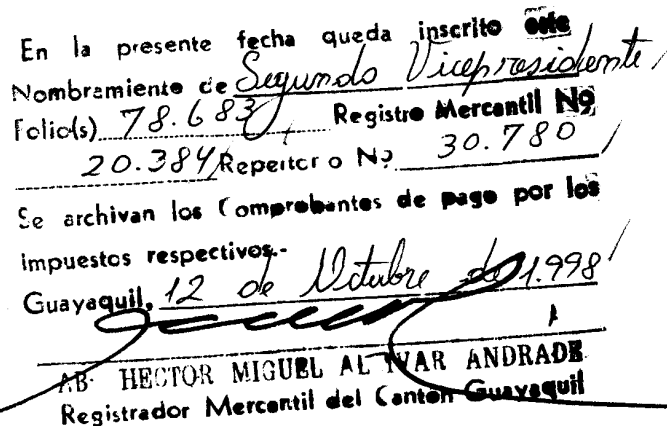 En la presente fecha queda inscrito este
Nombramiento de Segundo Vicepresidente/
Folio(s) 78.683/ Registro Mercantil Nº
20.384/ Repertorio Nº 30.780/
Se archivan los Comprobantes de pago por los
impuestos respectivos.-
Guayaquil, 12 de Octubre de 1.998/
AB. HECTOR MIGUEL ALCIVAR ANDRADE
Registrador Mercantil del Cantón Guayaquil